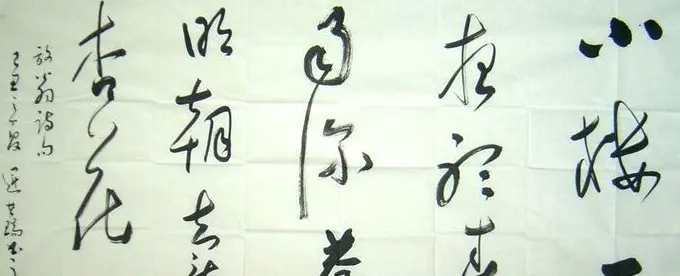 小楼一
夜听春
雨深巷
明朝卖
杏花
放翁诗句